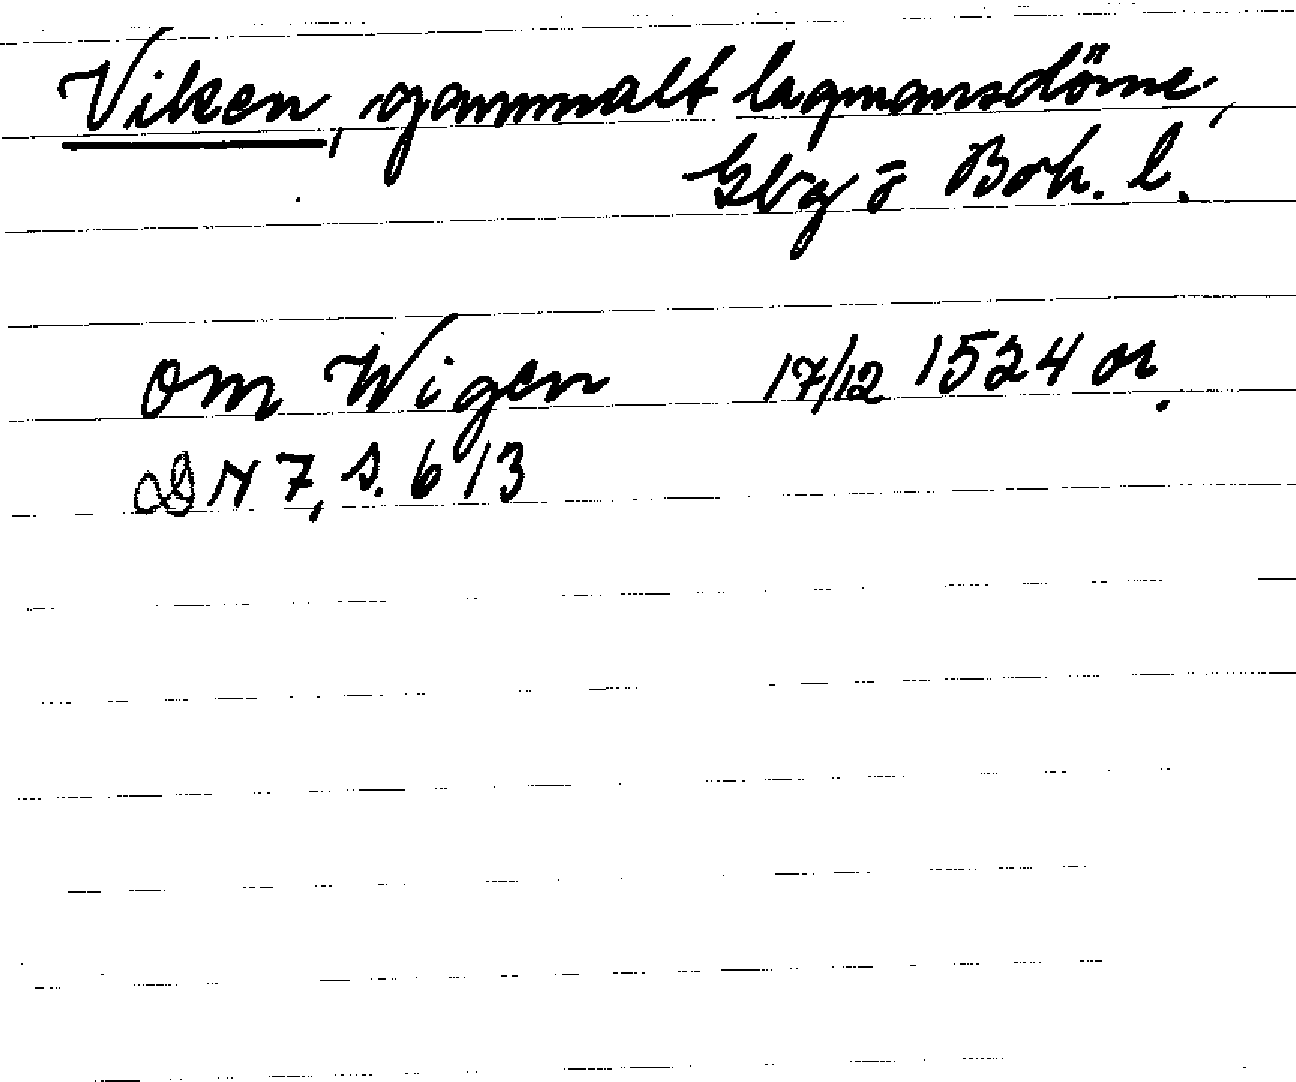 Viken, gammalt lagmansdöme,
Gbg o Boh. l.
om Wigen 17/12 1524 or.
DN 7, s. 613